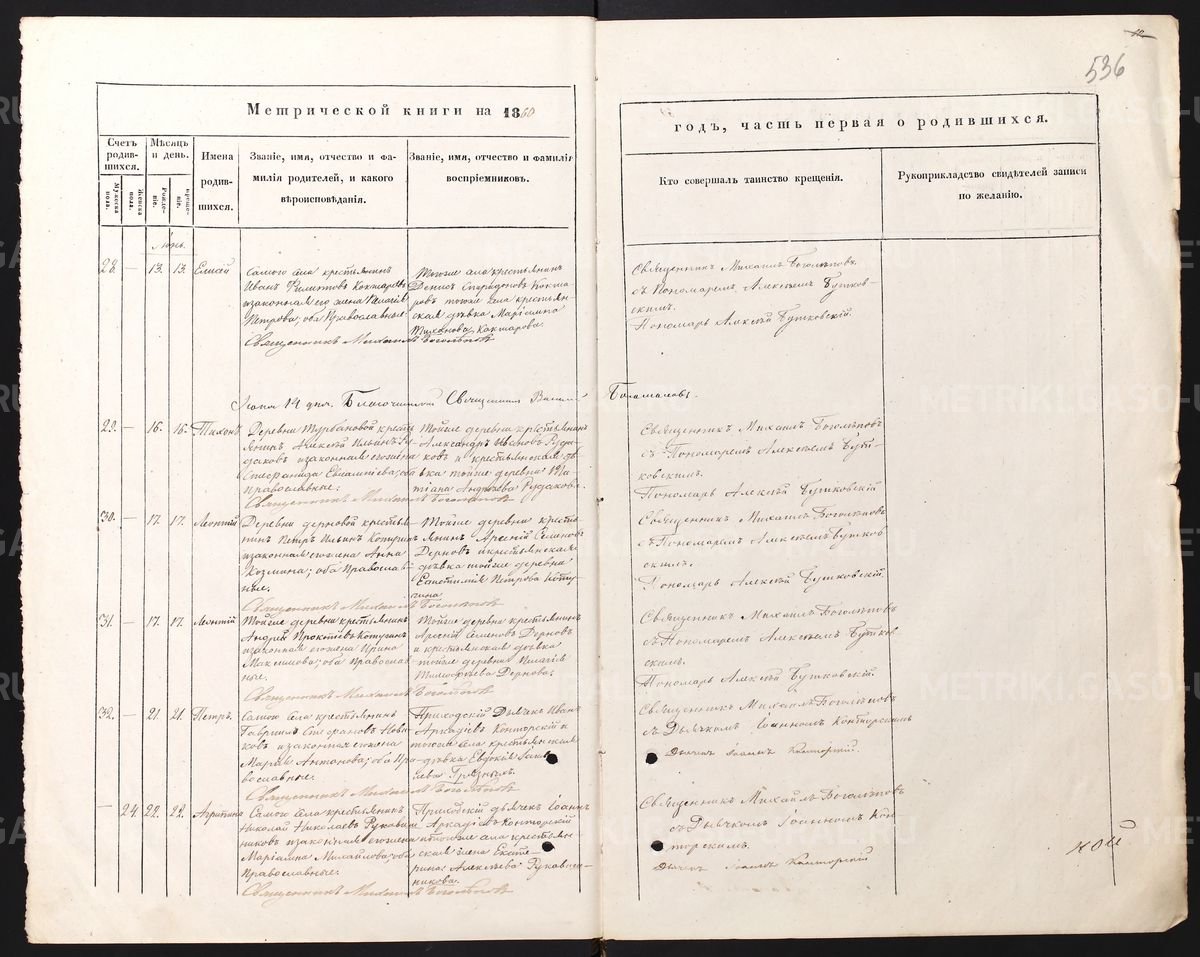 536
Метрической книги на 1860
годъ, часть первая о родившихся.
Счетъ родив-шихся.
Мѣсяцъ и день.
Имена родив-шихся.
Званіе, имя, отчество и фа-
милія родителей, и какого
вѣроисповѣданія.
Званіе, имя, отчество и фамилія
воспріемниковъ.
Кто совершалъ таинство крещенія.
Рукоприкладство свидѣтелей записи
по желанію.
Мужеска пола.
Женска пола.
Рожде-ніе.
креще-ніе.
Іюнь.
28. — 13. 13. Елисей
Самого села крестьянинъ
Иванъ Филиповъ
изаконная его жена Палагія
Петрова, оба Православные
Священникъ Михаилъ Боголѣповъ
Тогоже села крестьянинъ
Денисъ Спиридоновъ Кокша-
ровъ тогоже села крестьян-
ская дѣвка Маріамна
Тиханова Кокшарова.
Священникъ Михаилъ Боголѣповъ
съ Пономаремъ Алексѣемъ Бутков-
скимъ.
Пономарь Алексѣй Бутковскій.
Іюня 14 дня. Благочинный Священникъ Василій
29. — 16. 16. Тихонъ
Деревни Турбановой кресть
янинъ Алексѣй Ильинъ Ру-
даковъ изаконная егожена
Стефанида Евлампіева; оба
Православные.
Священникъ Михаилъ Боголѣповъ
Тойже деревни крестьянинъ
Александръ Ивановъ Руда-
ковъ и крестьянская дѣ-
вка тойже деревни
Андреева Рудакова.
Священникъ Михаилъ Боголѣповъ
съ Пономаремъ Алексѣемъ Бут-
ковскимъ.
Пономарь Алексѣй Бутковскій
30. — 17. 17. Леонтій
Деревни Дерновой крестья-
нинъ Петръ Ильинъ
изаконная егожена Анна
Козмина; оба Православ-
ные.
Священникъ Михаилъ Боголѣповъ
Тойже деревни кресть-
янинъ Арсеній Семеновъ
Дерновъ икрестьянская
дѣвка тойже деревни
Петрова Коту-
гина
Священникъ Михаилъ Боголѣповъ
съ Пономаремъ Алексѣемъ Бутков
скимъ.
Пономарь Алексѣй Бутковскій
31. — 17. 17. Леонтій
Тойже деревни крестьянинъ
Андрей
изаконная егожена Ирина
Максимова; оба Православ-
ные.
Священникъ Михаилъ Боголѣповъ
Тойже деревни крестьянинъ
Арсеній Семеновъ Дерновъ
и крестьянская дѣвка
тойже деревни Палагія
Тимофѣева Дернова.
Священникъ Михаилъ Боголѣповъ
съ Пономаремъ Алексѣемъ Бутков
скимъ.
Пономарь Алексѣй Бутковскій.
32. — 21. 21. Петръ.
Самого села крестьянинъ
Гавріилъ Стефановъ Нови-
ковъ изаконная егожена
Марья Антонова; оба Пра-
вославные.
Священникъ Михаилъ Боголѣповъ
Приходскій Дьячекъ Иванъ
Аркадіевъ Конторскій и
тогоже села крестьянская
дѣвка Евдокія
Грязныхъ.
Священникъ Михаилъ Боголѣповъ
съ Дьячкомъ Іоанномъ Конторскимъ
Дьячекъ Іоаннъ Конторскій.
— 24. 22. 22. Агрипина
Самого села крестьянинъ
Николай Николаевъ Рукавиш-
никовъ изаконная егожена
Маріамна Михайлова; оба
Православные.
Священникъ Михаилъ Боголѣповъ
Приходскій дьячекъ Іоаннъ
Аркадіевъ Конторскій
итогоже села крестьян-
ская жена Екате-
рина Алексѣева Рукавиш-
никова.
Священникъ Михаилъ Боголѣповъ
съ Дьячкомъ Іоанномъ Кон-
торскимъ.
Дьячекъ Іоаннъ Конторскій